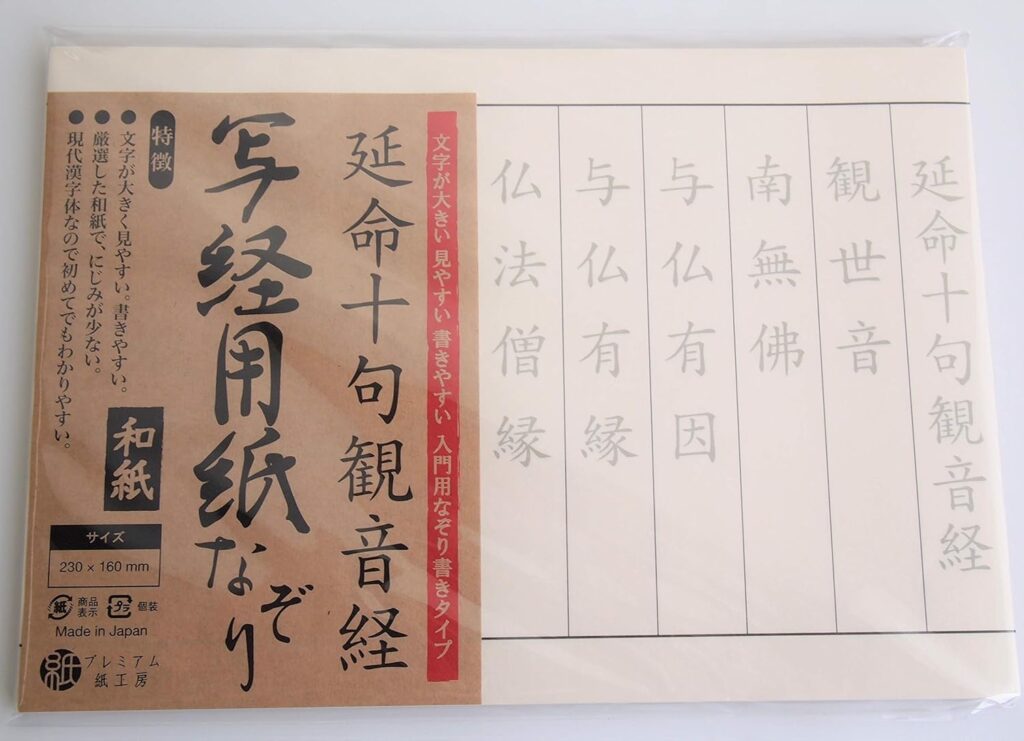 延命十句観音経
観世音
南無佛
与仏有因
与仏有縁
仏法僧縁
文字が大きい 見やすい 書きやすい 入門用なぞり書きタイプ
延命十句観音経
写経用紙なぞり
特徴
●文字が大きく見やすい。書きやすい。
●厳選した和紙で、にじみが少ない。
●現代漢字体なので初めてでもわかりやすい。
和紙
サイズ
230 × 160 mm
紙 商品表示 プラ 個装
Made in Japan
紙 プレミアム
紙工房